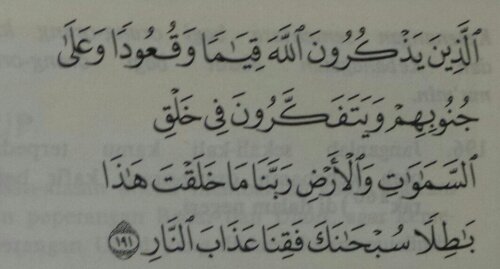 الَّذِينَ يَذْكُرُونَ اللَّهَ قِيَامًا وَقُعُودًا وَعَلَىٰ
جُنُوبِهِمْ وَيَتَفَكَّرُونَ فِي خَلْقِ
السَّمَاوَاتِ وَالْأَرْضِ رَبَّنَا مَا خَلَقْتَ هَٰذَا
بَاطِلًا سُبْحَانَكَ فَقِنَا عَذَابَ النَّارِ ۝١٩١